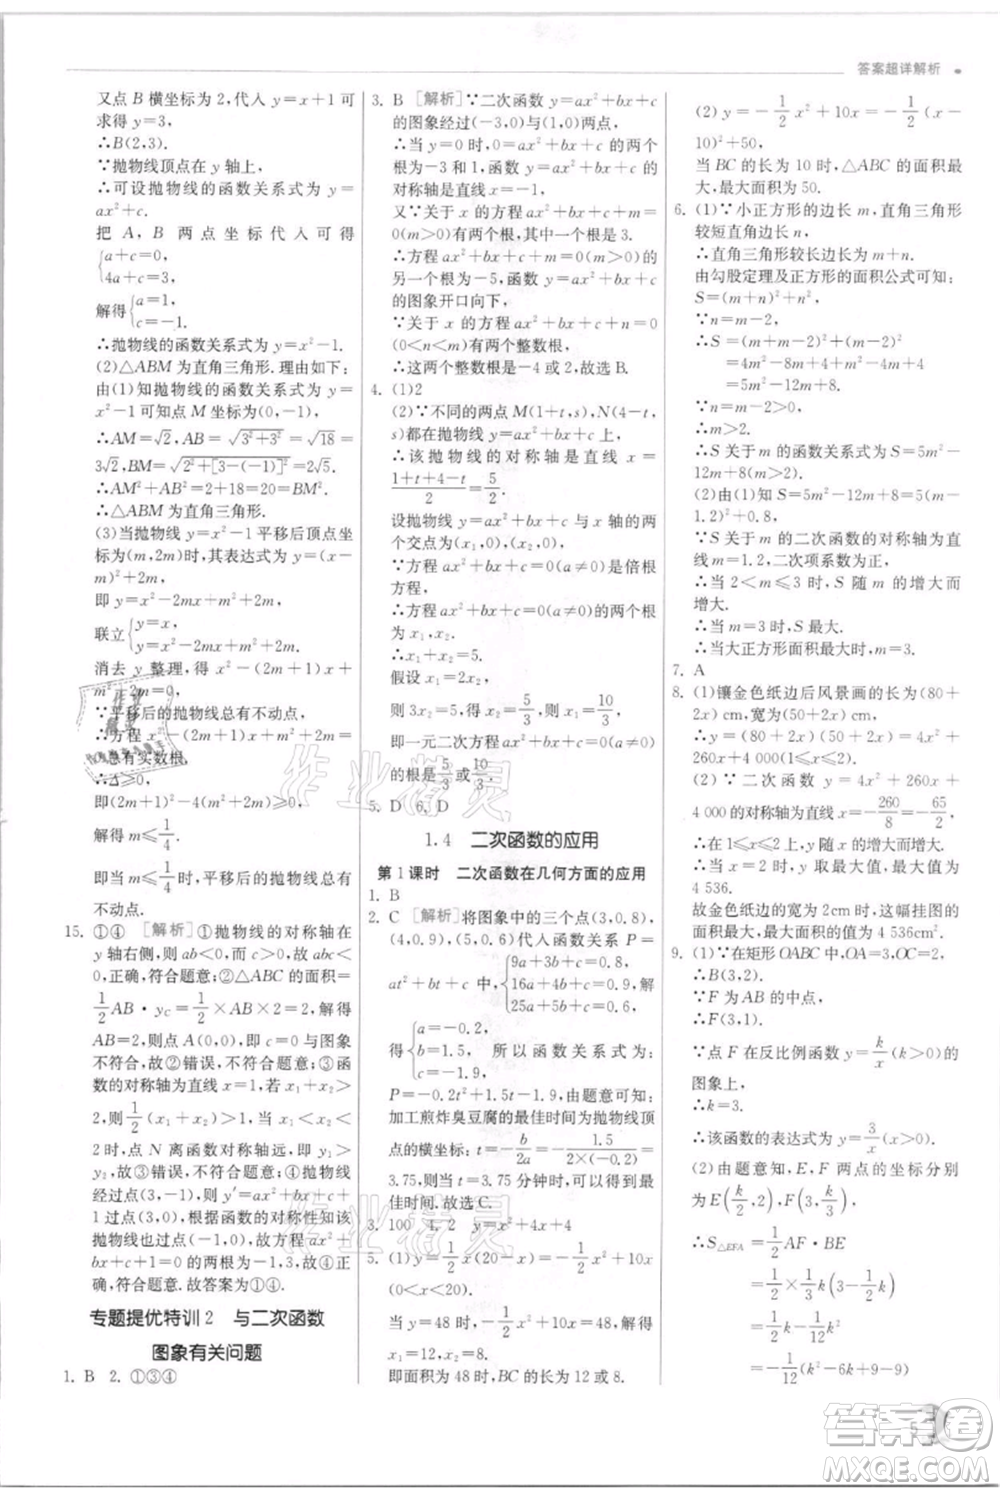 答案超详解析
又点B横坐标为2,代入y=x+1可
求得y=3,
∴B(2,3).
∵抛物线顶点在y轴上,
∴可设抛物线的函数关系式为y=
ax²+c.
把A,B两点坐标代入可得
{a+c=0,
4a+c=3,
解得{a=1,
c=-1.
∴抛物线的函数关系式为y=x²-1.
(2)△ABM为直角三角形.理由如下:
由(1)知抛物线的函数关系式为y=
x²-1可知点M坐标为(0,-1),
∴AM=√2,AB=√(3²+3²)=√18=
3√2,BM=√(2²+[3-(-1)]²)=2√5.
∴AM²+AB²=2+18=20=BM².
∴△ABM为直角三角形.
(3)当抛物线y=x²-1平移后顶点坐
标为(m,2m)时,其表达式为y=(x-
m)²+2m,
即y=x²-2mx+m²+2m,
联立{y=x,
y=x²-2mx+m²+2m,
消去y整理,得x²-(2m+1)x+
m²+2m=0,
∵平移后的抛物线总有不动点,
∴方程x²-(2m+1)x+m²+2m=0
总有实数根.
∴Δ≥0,
即(2m+1)²-4(m²+2m)≥0,
解得m≤1/4,
即当m≤1/4时,平移后的抛物线总有
不动点.
15. ①④ [解析]①抛物线的对称轴在
y轴右侧,则ab<0,而c>0,故abc<
0,正确,符合题意;②△ABC的面积=
1/2AB·y_C=1/2×AB×1/2=2,解得
AB=2,则点A(0,0),即c=0与图象
不符合,故②错误,不符合题意;③函
数的对称轴为直线x=1,若x₁+x₂>
2,则1/2(x₁+x₂)>1,当x₁<1<x₂<
2时,点N离函数对称轴远,故y₁>
y₂,故③错误,不符合题意;④抛物线
经过点(3,-1),则y′=ax²+bx+c+1
经过点(3,0),根据函数的对称性可知
抛物线也过点(-1,0),故④正确,符
合题意.故答案为①④.
专题提优特训2 与二次函数
图象有关问题
1. B 2. ①③④
3. B [解析]∵二次函数y=ax²+bx+c
的图象经过(-3,0)与(1,0)两点,
∴当y=0时,0=ax²+bx+c的两个根
为-3和1,函数y=ax²+bx+c的
对称轴是直线x=-1.
又∵关于x的方程ax²+bx+c+m=
0(m>0)有两个根,其中一个根是3.
∴方程ax²+bx+c+m=0(m>0)的
另一个根为-5,函数y=ax²+bx+c
的图象开口向下,
∵关于x的方程ax²+bx+c+n=0
(0<n<m)有两个整数根,
∴这两个整数根是-4或2,故选B.
4. (1)2
(2)∵不同的两点M(1+t,s),N(4-t,
s)都在抛物线y=ax²+bx+c上,
∴该抛物线的对称轴是直线x=
(1+t+4-t)/2=5/2.
设抛物线y=ax²+bx+c与x轴的两
个交点为(x₁,0),(x₂,0).
∵方程ax²+bx+c=0(a≠0)是倍根
方程,
∴方程ax²+bx+c=0(a≠0)的两个根
为x₁,x₂.
∴x₁+x₂=5.
假设x₁=2x₂,
则3x₂=5,解得x₂=5/3,x₁=10/3,
即一元二次方程ax²+bx+c=0(a≠0)
的根为5/3或10/3.
5. D 6. D
1.4 二次函数的应用
第1课时 二次函数在几何方面的应用
1. B
2. C [解析]将图象中的三个点(3,0.8),
(4,0.9),(5,0.6)代入函数关系P=
at²+bt+c中,{9a+3b+c=0.8,
16a+4b+c=0.9,
25a+5b+c=0.6,
得{a=-0.2,
b=1.5,
c=-1.9. 所以函数关系式为:
P=-0.2t²+1.5t-1.9,由题意可知:
加工煎炸臭豆腐的最佳时间为抛物线顶
点的横坐标:t=-b/2a=-1.5/(-0.2×2)=
3.75,则当t=3.75分钟时,可以得到最
佳时间.故选C.
3. 100 4. 2 y=x²+4x+4
5. (1)y=1/2x(20-x)=-1/2x²+10x
(0<x<20).
当y=48时,-1/2x²+10x=48,解得
x₁=12,x₂=8,
即面积为48时,BC的长为12或8.
(2)y=-1/2x²+10x=-1/2(x-
10)²+50,
当BC的长为10时,△ABC的面积最
大,最大面积为50.
6. (1)∵小正方形的边长m,直角三角形
较短直角边长n,
∴直角三角形较长边长为m+n.
由勾股定理及正方形的面积公式可知:
S=(m+n)²+n²,
∵n=m-2,
∴S=(m+m-2)²+(m-2)²
=4m²-8m+4+m²-4m+4
=5m²-12m+8.
∵n=m-2>0,
∴m>2.
∴S关于m的函数关系式S=5m²-
12m+8(m>2).
(2)由(1)知,S=5m²-12m+8=5(m-
1.2)²+0.8,
∵S关于m的二次函数的对称轴为直
线m=1.2,二次项系数为正,
∴当2<m≤3时,S随m的增大而
增大.
∴当m=3时,S最大.
∴当大正方形面积最大时,m=3.
7. A
8. (1)镶金色纸边后风景画的长为(80+
2x)cm,宽为(50+2x)cm,
∴y=(80+2x)·(50+2x)=4x²+
260x+4 000(1≤x≤2).
(2)∵二次函数y=4x²+260x+
4 000的对称轴为直线x=-260/8=-65/2,
∴在1≤x≤2上,y随x的增大而增大.
∴当x=2时,y取最大值,最大值为
4 536.
故金色纸边的宽为2cm时,这幅挂图的
面积最大,最大面积的值为4 536cm².
9. (1)∵在矩形OABC中,OA=3,OC=2,
∴B(3,2).
∵F为AB的中点,
∴F(3,1).
∵点F在反比例函数y=k/x(k>0)的
图象上,
∴k=3.
∴该函数的表达式为y=3/x(x>0).
(2)由题意知,E,F两点的坐标分别
为E(k/2,2),F(3,k/3),
∴S△EFA=1/2AF·BE
=1/2×1/3k(3-1/2k)
=1/2k-1/12k²
=-1/12(k²-6k+9-9)
作业精灵
作业精灵
答案圈
MXQE.COM